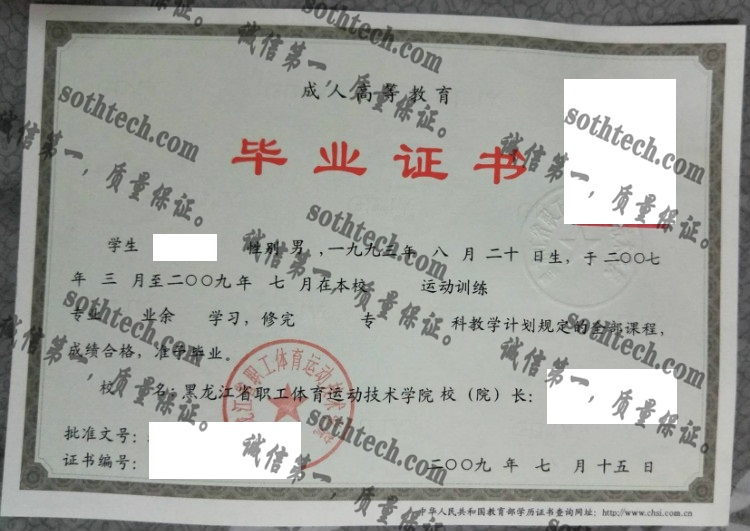 成人高等教育
毕业证书
学生 性别 男 ,一九九三年 八 月 二十 日生，于二〇〇七
年 三 月至二〇〇九年 七 月在本校 运动训练
专业 业余 学习，修完 专 科教学计划规定的全部课程，
成绩合格，准予毕业。
校 名：黑龙江省职工体育运动技术学院 校（院）长：
批准文号：
证书编号：
二〇〇九 年 七 月 十五 日
中华人民共和国教育部学历证书查询网址：http://www.chsi.com.cn
职工体育运动技术
sothtech.com
诚信第一，质量保证。
sothtech.com
诚信第一，质量保证。
sothtech.com
诚信第一，质量保证。
sothtech.com
诚信第一，质量保证。
sothtech.com
诚信第一，质量保证。
sothtech.com
诚信第一，质量保证。
sothtech.com
诚信第一，质量保证。
sothtech.com
诚信第一，质量保证。